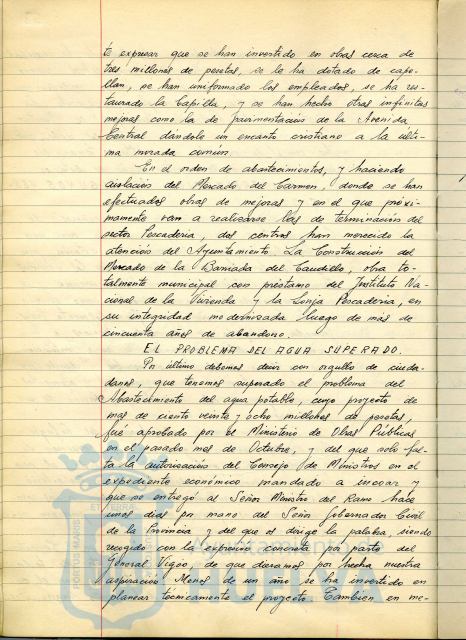 te expresar que se han invertido en obras cerca de
tres millones de pesetas, se le ha dotado de cape-
llan, se han uniformado los empleados, se ha res-
taurado la Capilla, y se han hecho otras infinitas
mejoras como la de pavimentación de la Avenida
Central dandole un encanto cristiano a la ulti-
ma morada común.
En el orden de abastecimentos, y haciendo
aislación del Mercado del Carmen, donde se han
efectuados obras de mejoras y en el que próxi-
mamente van a realizarse las de terminación del
sector Pescaderia, dos centros han merecido la
atención del Ayuntamiento. La Construcción del
Mercado de la Barriada del Caudillo, obra to-
talmente municipal con préstamo del Instituto Na-
cional de la Vivienda y la Lonja Pescaderia, en
su integridad modernizada luego de más de
cincuenta años de abandono.
EL PROBLEMA DEL AGUA SUPERADO.
Por último debemos decir con orgullo de ciuda-
danos, que tenemos superado el problema del
Abastecimiento del agua potable, cuyo proyecto de
mas de ciento veinte y ocho millones de pesetas,
fué aprobado por el Ministerio de Obras Públicas
en el pasado mes de Octubre, y del que solo fal-
ta la autorización del Consejo de Ministros en el
expediente económico mandado a incoar y
que se entregó al Señor Ministro del Ramo hace
unos dias por mano del Señor Gobernador Civil
de la Provincia y del que os dirige la palabra, siendo
recogido con la expresión concreta por parte del
General Vigón, de que dieramos por hecha nuestra
aspiración. Menos de un año se ha invertido en
planear tecnicamente el proyecto. Tambien en me-